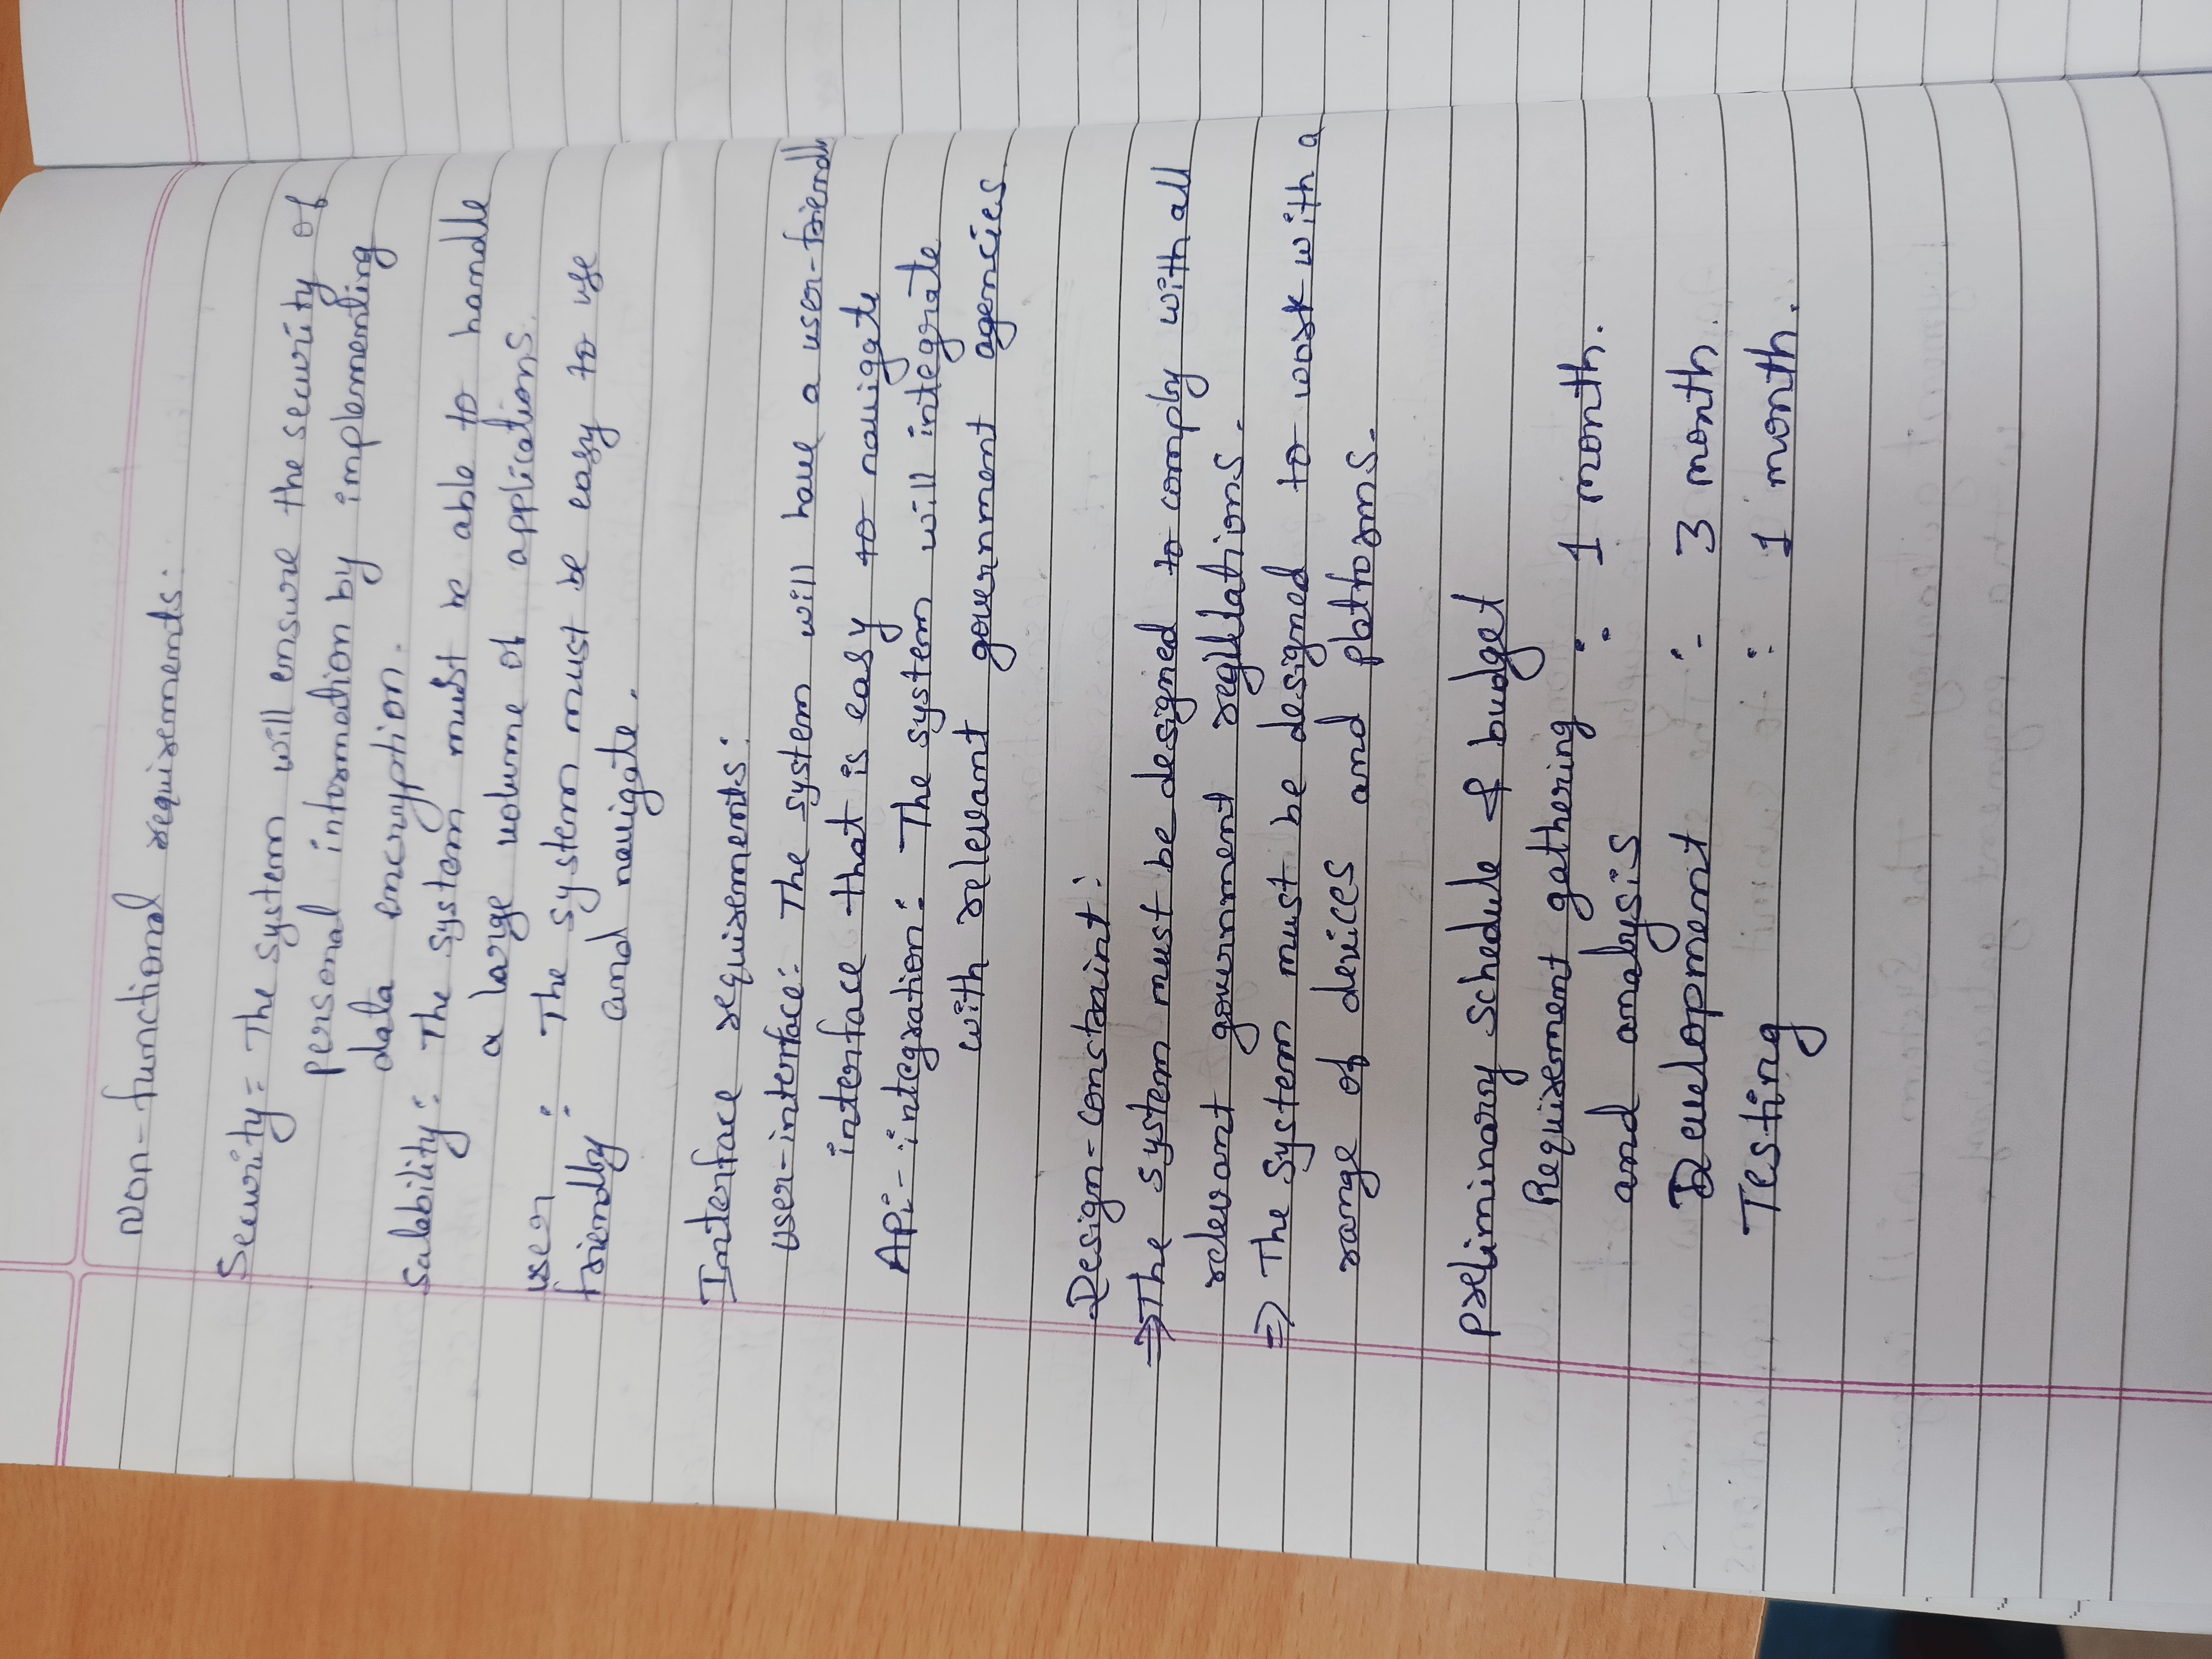 Non-functional requirements:
Security: The system will ensure the security of
personal information by implementing
data encryption.
Salability: The system must be able to handle
a large volume of applications.
user : The system must be easy to use
friendly and navigate.
Interface requirements:
user-interface: The system will have a user-friendly
interface that is easy to navigate
APi-integration: The system will integrate
with relevant government agencies.
Design-constraint:
⇒ The system must be designed to comply with all
relevant government regulations.
⇒ The system must be designed to work with a
range of devices and platforms.
preliminary schedule & budget
Requirement gathering : 1 month.
and analysis
Development :- 3 month.
Testing : 1 month.